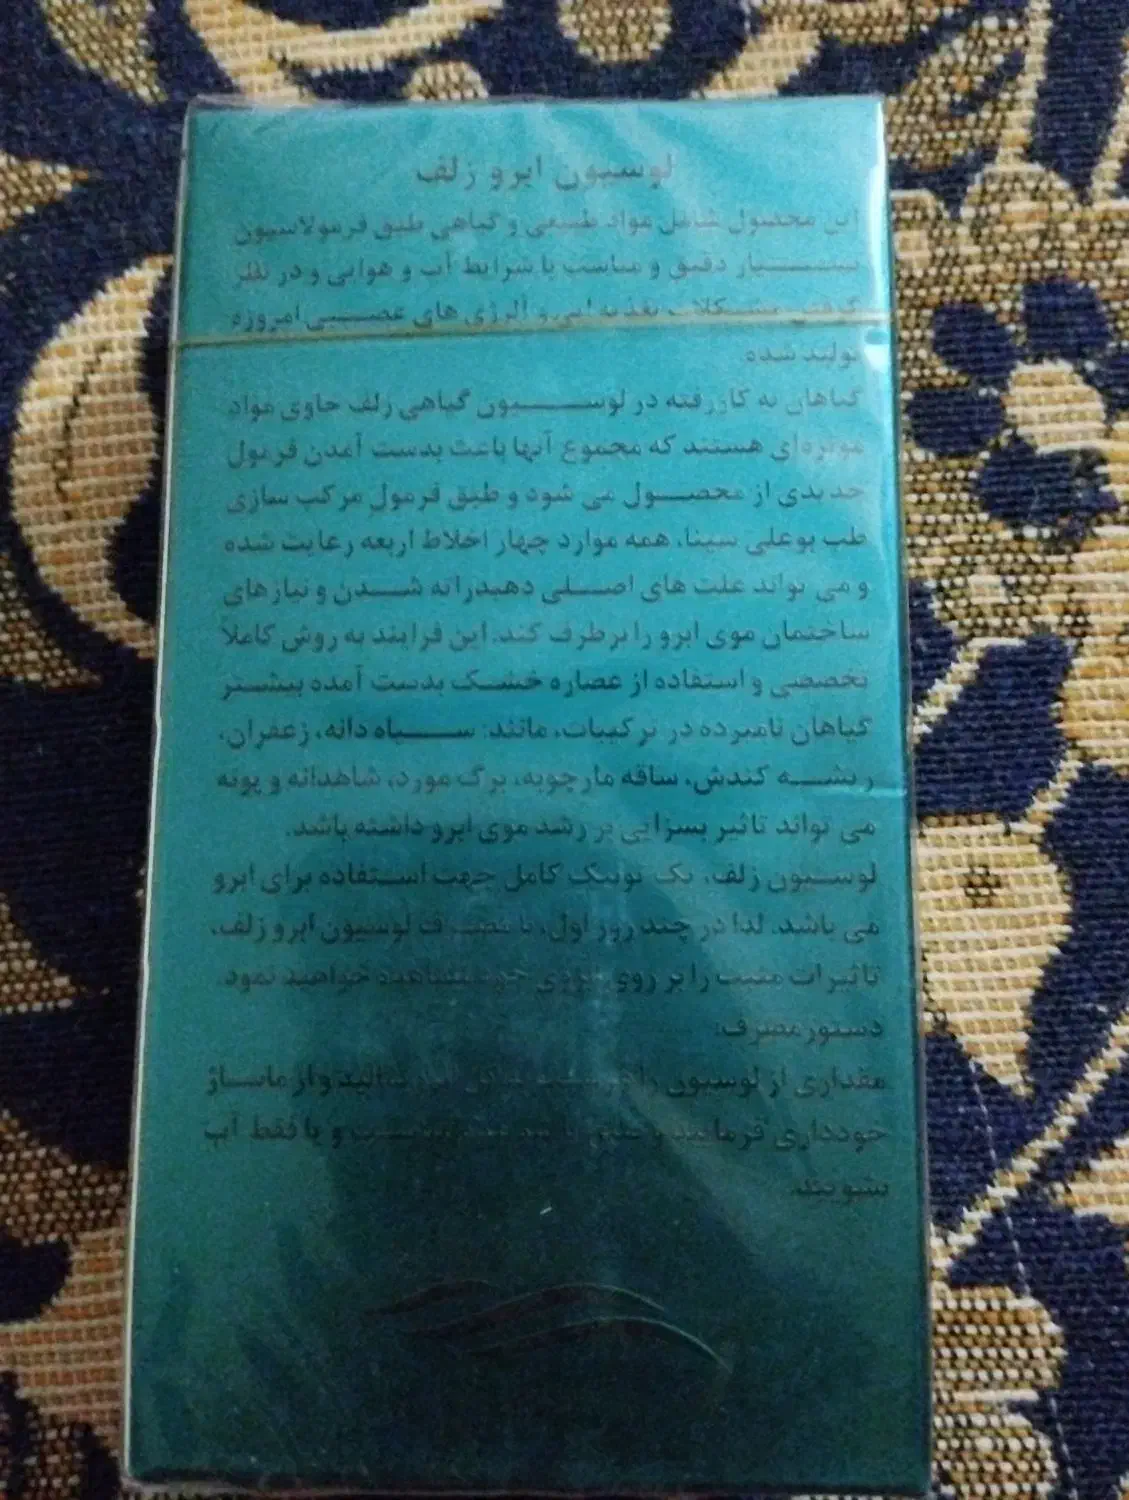 لوسیون ابرو زلف
این محصول شامل مواد طبیعی و گیاهی طبق فرمولاسیون
بسیار دقیق و مناسب با شرایط آب و هوایی و در نظر
گرفتن مشکلات تغذیه ایی و آلرژی های عصبی امروزه
تولید شده.
گیاهان به کار رفته در لوسیون گیاهی زلف حاوی مواد
موثره‌ای هستند که مجموع آنها باعث بدست آمدن فرمول
جدیدی از محصول می شود و طبق فرمول مرکب سازی
طب بوعلی سینا، همه موارد چهار اخلاط اربعه رعایت شده
و می تواند علت های اصلی دهیدراته شدن و نیازهای
ساختمان موی ابرو را برطرف کند. این فرایند به روش کاملا
تخصصی و استفاده از عصاره خشک بدست آمده بیشتر
گیاهان نامبرده در ترکیبات، مانند: سیاه دانه، زعفران،
ریشه کندش، ساقه مارچوبه، برگ مورد، شاهدانه و پونه
می تواند تاثیر بسزایی بر رشد موی ابرو داشته باشد.
لوسیون زلف، یک تونیک کامل جهت استفاده برای ابرو
می باشد. لذا در چند روز اول، با مصرف لوسیون ابرو زلف،
تاثیرات مثبت را بر روی ابروی خود مشاهده خواهید نمود.
دستور مصرف:
مقداری از لوسیون را بمالید و از ماساژ
خودداری فرمایید و با فقط آب
بشویید.